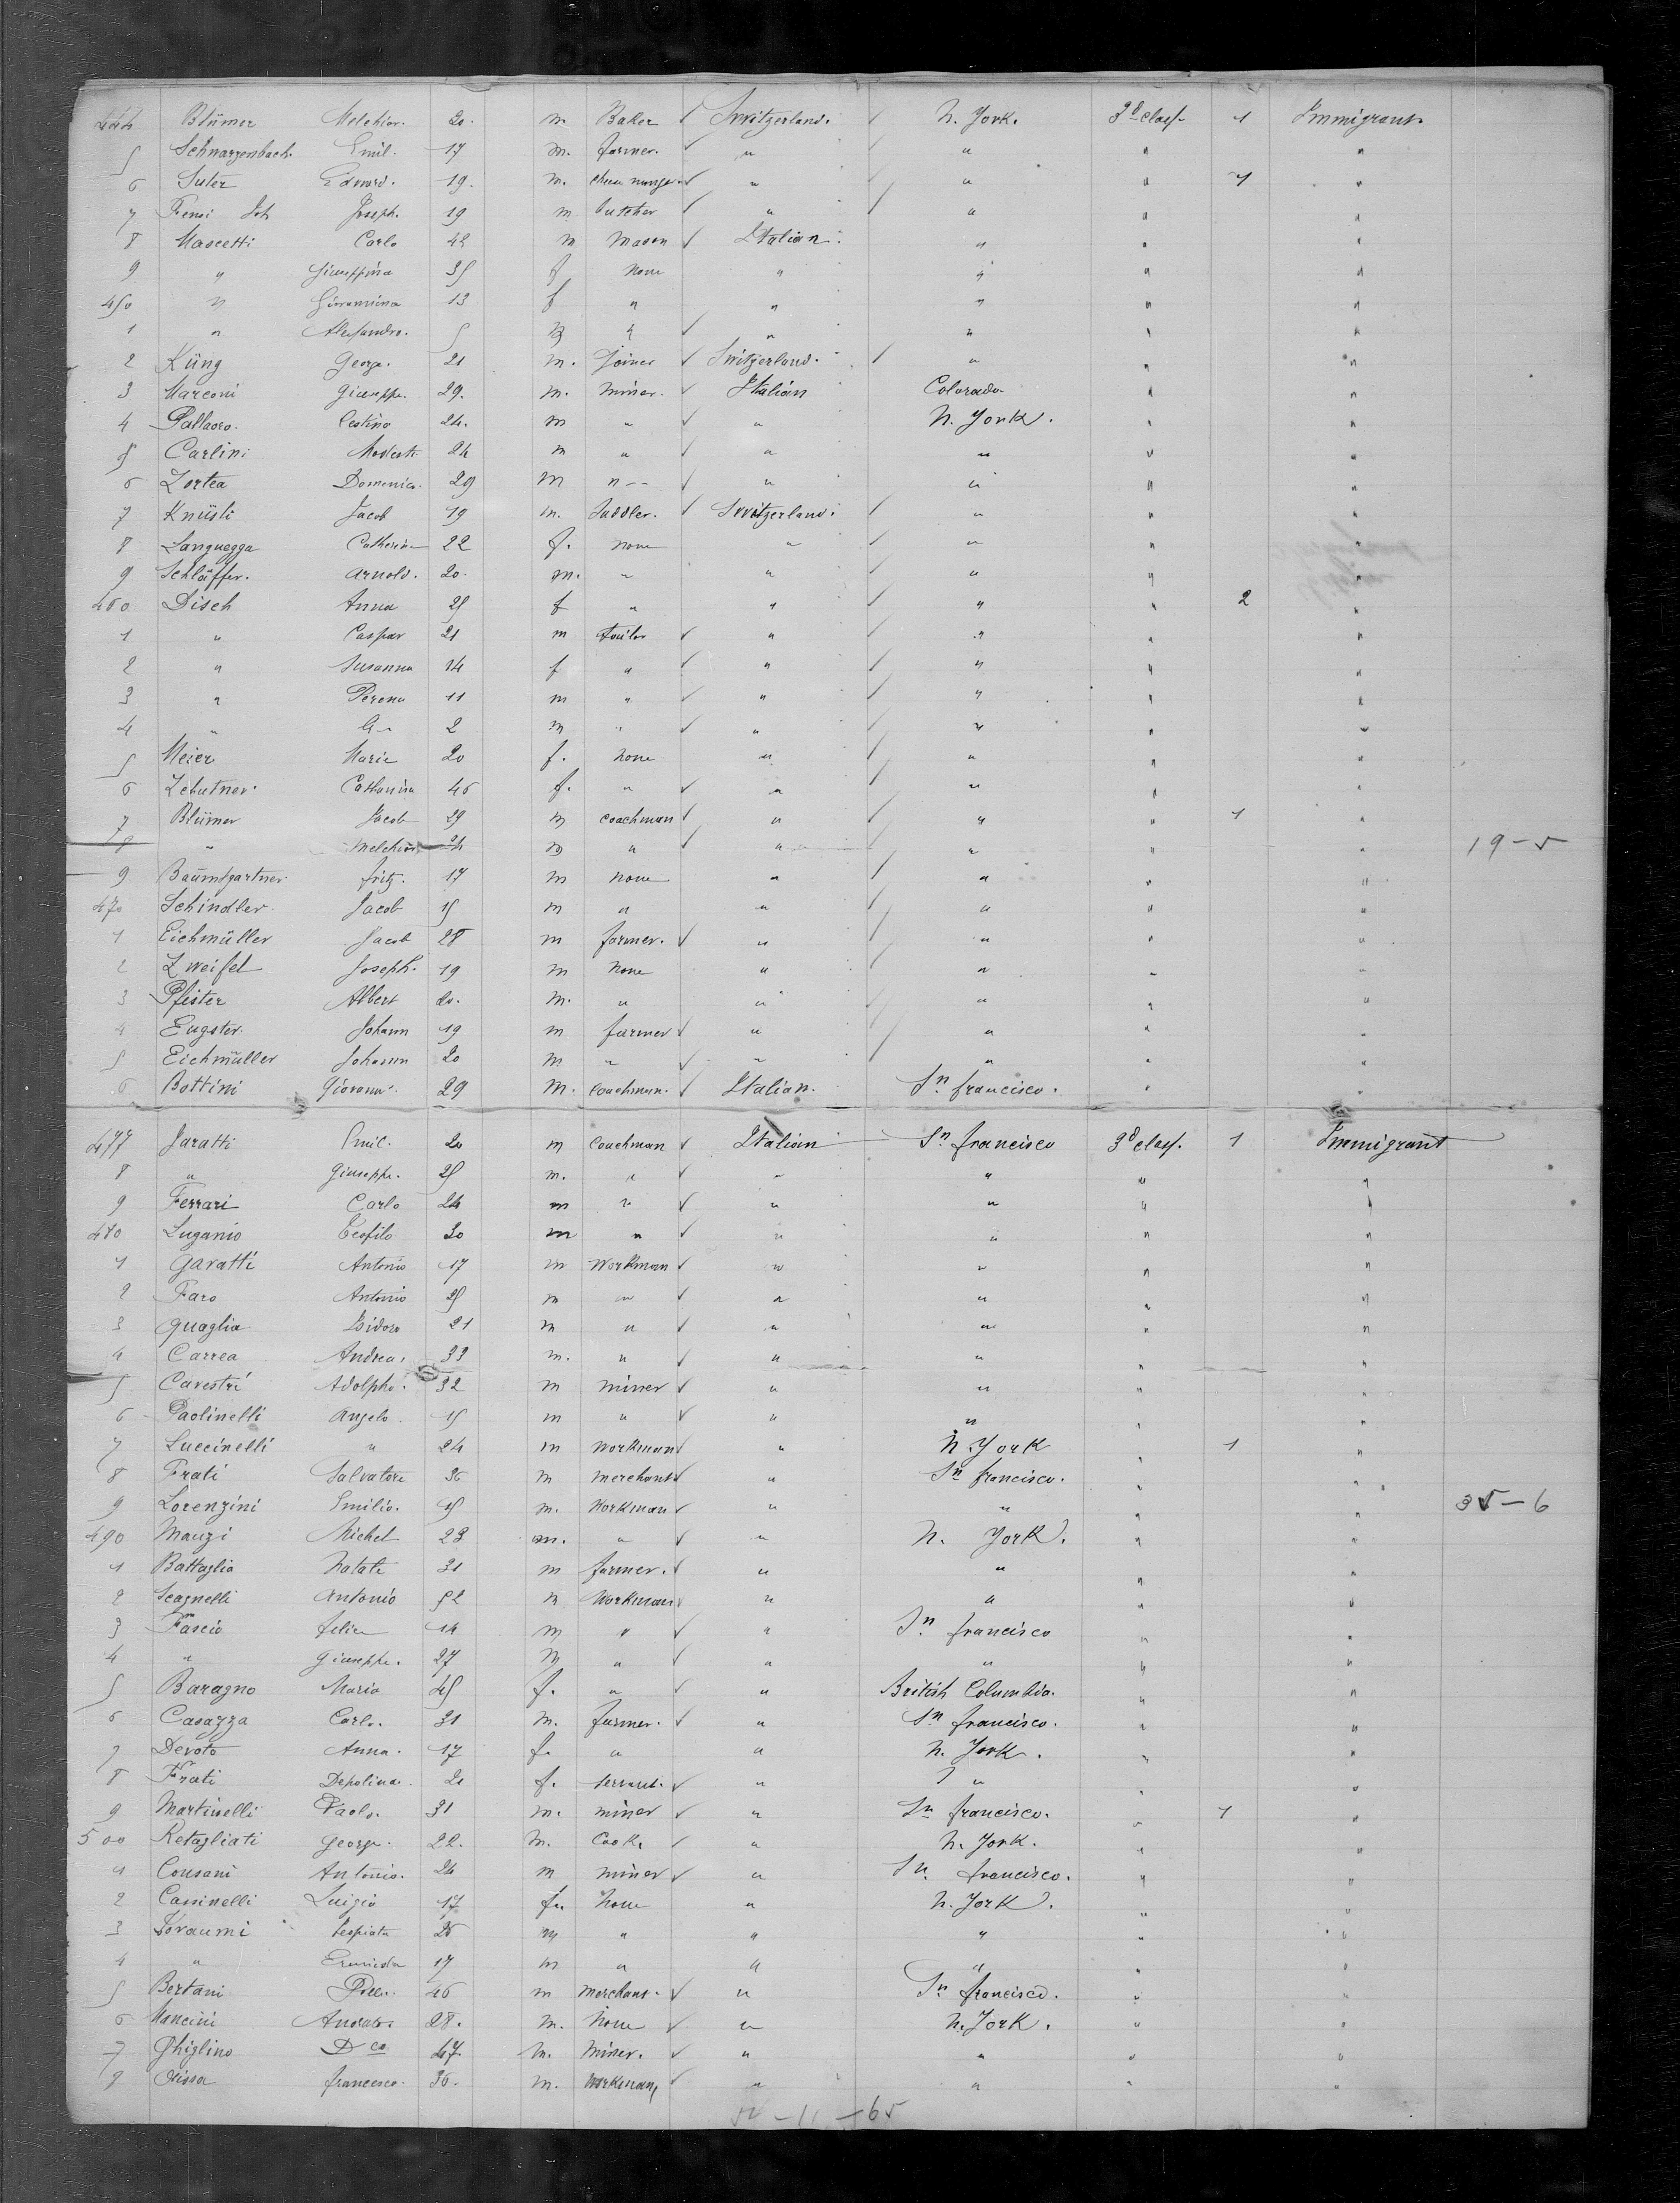 444 Blümer Melchior 20. m Baker ✓ Switzerland. N. York. 3d class. 1 Immigrant.
5 Schwarzenbach Emil. 17 m. farmer. ✓ " " " "
6 Suter Edward. 19. m. ✓ " " " 1 "
7 Joseph. 19 m butcher ✓ " " " "
8 Mascetti Carlo 42 m mason ✓ Italian. " " "
9 " Giuseppina 35 f none " " " "
450 " Giovannina 13 f " " " " "
1 " Alessandro. 5 m " ✓ " " " "
2 Küng George. 21 m. Joiner ✓ Switzerland. " " "
3 Marconi Giuseppe. 29. m. miner. ✓ Italian Colorado. " "
4 Pallaoro. Cestino 24. m " ✓ " N. York. " "
5 Carlini Modesto 24 m " ✓ " " " "
6 Zortea Domenico. 29 m " ✓ " " " "
7 Knüsli Jacob 19 m. Saddler. ✓ Switzerland. " " "
8 Languegga Catherina 22 f. none " " " "
9 Schläffer. Arnold. 20. m. " " " " "
460 Disch Anna 25 f " " " " 2 "
1 " Caspar 21 m tailor ✓ " " " "
2 " Susanna 14 f " ✓ " " " "
3 " Verena 11 m " ✓ " " " "
4 " 2 m " ✓ " " " "
5 Meier Marie 20 f. none " " " "
6 Zehutner. Catharina 46 f. " ✓ " " " "
7 Blümer Jacob 29 m coachman ✓ " " " 1 "
8 " Melchior 24 m " ✓ " " " " 19-5
9 Baumgartner fritz. 17 m none " " " "
470 Schindler. Jacob 15 m " " " " "
1 Eichmüller Jacob 28 m farmer. ✓ " " " "
2 Zweifel Joseph. 19 m none " " " "
3 Pfister Albert 20. m. " " " " "
4 Eugster. Johann 19 m farmer ✓ " " " "
5 Eichmüller Johann 20 m " ✓ " " " "
6 Bottini Giovanni. 29 m. coachman. ✓ Italian. Sn francisco. " "
477 Jaratti Emil. 20 m coachman ✓ Italian Sn francisco 3d class. 1 Immigrant
8 " Giuseppe. 25 m. " ✓ " " " "
9 Ferrari Carlo 24 m " ✓ " " " "
480 Luganio Teofilo 30 m " ✓ " " " "
1 Garatti Antonio 17 m Workman ✓ " " " "
2 Faro Antonio 25 m " ✓ " " " "
3 Quaglia Isidoro 21 m " ✓ " " " "
4 Carrea Andrea. 33 m. " ✓ " " " "
5 Cavestri Adolpho. 32 m miner ✓ " " " "
6 Paolinelli Angelo 15 m " ✓ " " " "
7 Luccinelli " 24 m workman ✓ " N. York " 1 "
8 Frati Salvatore 36 m merchant ✓ " Sn francisco. " "
9 Lorenzini Emilio. 15 m. Workman ✓ " " " " 35-6
490 Mauzi Michel 23 m. " ✓ " N. York. " "
1 Battaglia Natale 31 m farmer. ✓ " " " "
2 Scagnelli Antonio 52 m Workman ✓ " " " "
3 Fascio felice 14 m " ✓ " Sn francisco " "
4 " Giuseppe. 27 m " ✓ " " " "
5 Baragno Maria 45 f. " ✓ " British Columbia. " "
6 Casazza Carlo. 31 m. farmer. ✓ " Sn francisco. " "
7 Devoto Anna. 17 f. " " N. York. " "
8 Frati Depolina. 20 f. servant. ✓ " " " "
9 Martinelli Paolo. 31 m. miner ✓ " Sn francisco. " 1 "
500 Retagliati George. 22. m. Cook. ✓ " N. York. " "
1 Consani Antonio. 24 m miner ✓ " Sn. francisco. " "
2 Cassinelli Luigia 17 f. none " N. York. " "
3 26 m " " " " "
4 " Ermida 17 m " " " " "
5 Bertani 46 m merchant. ✓ " Sn francisco. " "
6 Mancini Andrea. 28. m. none ✓ " N. York. " "
7 Ghiglino Dco 47. m. miner. ✓ " " " "
8 francesco. 36. m. Workman ✓ " " " "
52-11-65